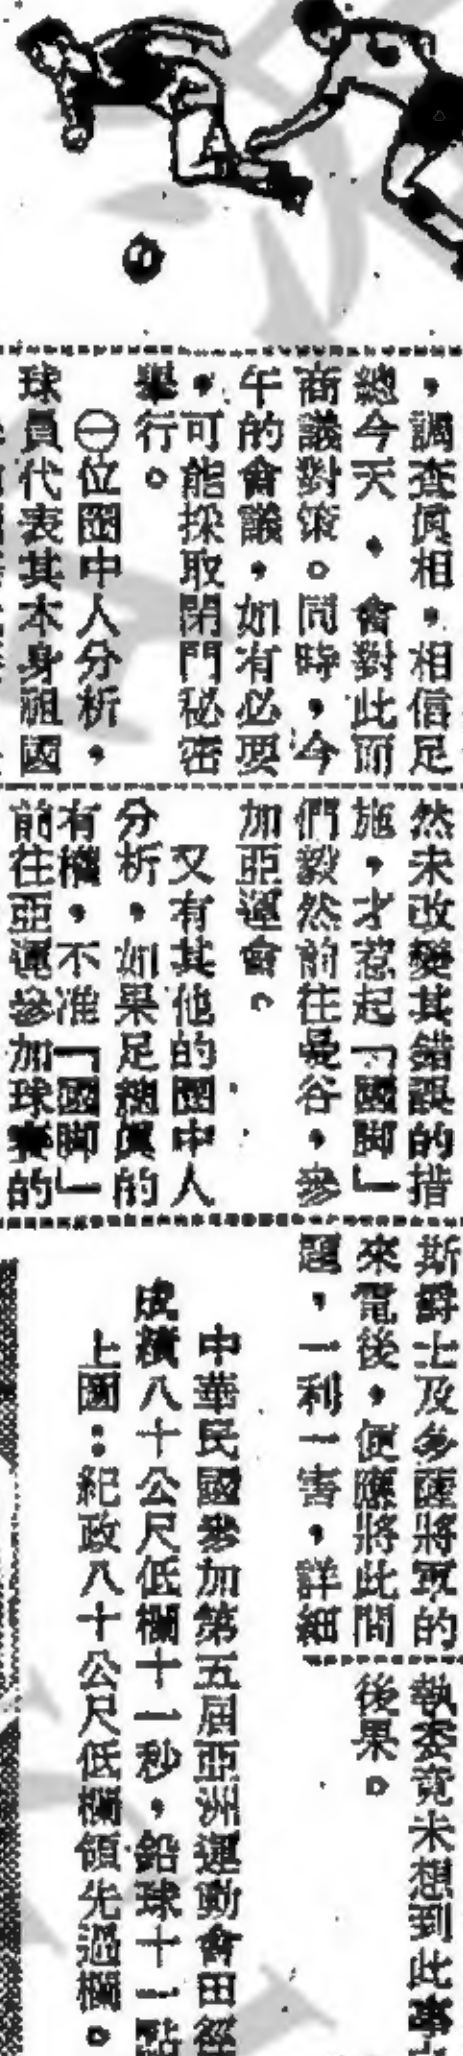 ，調查眞相，相信足
總今天，會對此而
商議對策。同時，今
午的會議，如有必要
，可能採取閉門秘密
舉行。
㊀一位圈中人分析，
球員代表其本身祖國
然未改變其錯誤的措
施，才惹起「國脚」
們毅然前往曼谷，參
加亞運會。
又有其他的圈中人
分析，如果足總眞的
有權，不准「國脚」
前往亞運參加球賽的
斯爵士及多薩將軍的
來電後，便應將此問
題，一利一害，詳細
執委竟未想到此事
後果。
中華民國參加第五屆亞洲運動會田徑
成績八十公尺低欄十一秒，鉛球十一點
上圖：紀政八十公尺低欄領先過欄。